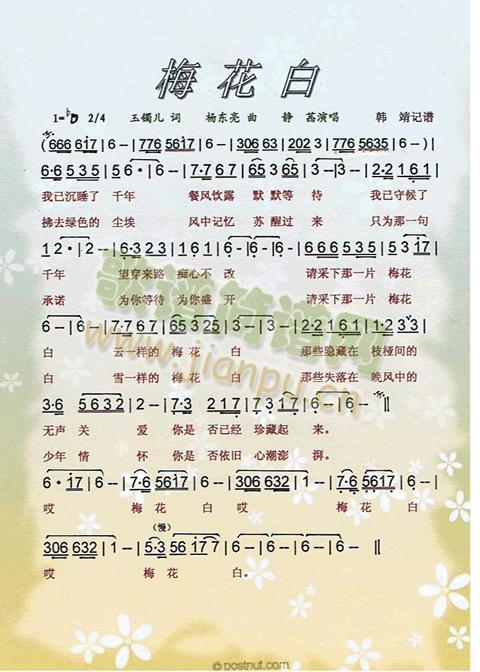 梅花白
1=♭D 2/4 玉镯儿 词 杨东亮 曲 静 茜演唱 韩 靖记谱
(666 617 | 6 – | 776 5617 | 6 – | 306 63 | 202 3 | 776 5635 | 6 – | 6 – )
6·6 535 | 65· | 6 – – | 7·67 | 653 35 | 3 – | 3 – – | 2·2 161 |
我已沉睡了 千年 餐风饮露 默默等 待 我已守候了
拂去绿色的 尘埃 风中记忆 苏醒过 来 只为那一句
12· | 2 – – | 6·323 | 7·65 | 6 – | 6 – | 6 – – | 666535 | 5 317 |
千年 望穿来路 痴心不 改 请采下那一片 梅花
承诺 为你等待 为你盛 开 请采下那一片 梅花
6 – – | 7·767 | 65 325 | 3 – | 3 – – | 2·2 161 | 1·2 33 |
白 云一样的 梅花 白 那些隐藏在 枝桠间的
白 雪一样的 梅花 白 那些失落在 晚风中的
3·6 5632 | 2 – – | 7·3 217 | 7317 | 6 – | 6 – –
无声 关 爱 你是 否已经 珍藏起 来。
少年 情 怀 你是 否依旧 心潮澎 湃。
6·17 | 6 – – | 7·6 5617 | 6 – – | 306 632 | 1 – – | 7·6 5617 | 6 – – |
哎 梅 花 白 哎 梅 花 白
(慢)
306 632 | 1 – | 5·3 56 17 7 | 6 – | 6 – | 6 – | 6 – –
哎 梅 花 白。
歌谱简谱网
www.jianpu.cn
© postnut.com